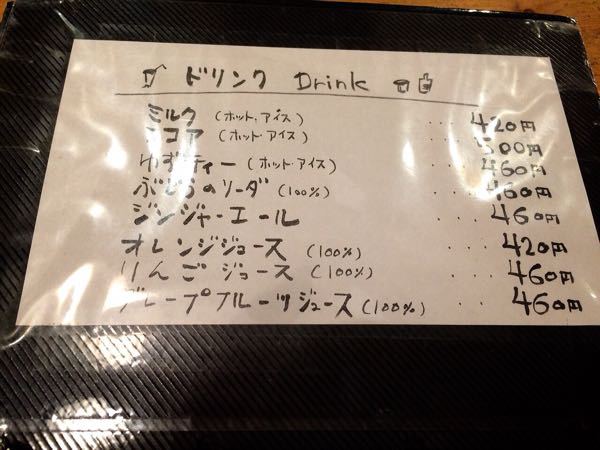 ドリンク Drink
ミルク (ホット.アイス) ... 420円
ココア (ホット・アイス) ... 500円
ゆずティー (ホット・アイス) ... 460円
ぶどうのソーダ (100%) ... 460円
ジンジャーエール ... 460円
オレンジジュース (100%) ... 420円
りんごジュース (100%) ... 460円
グレープフルーツジュース (100%) ... 460円